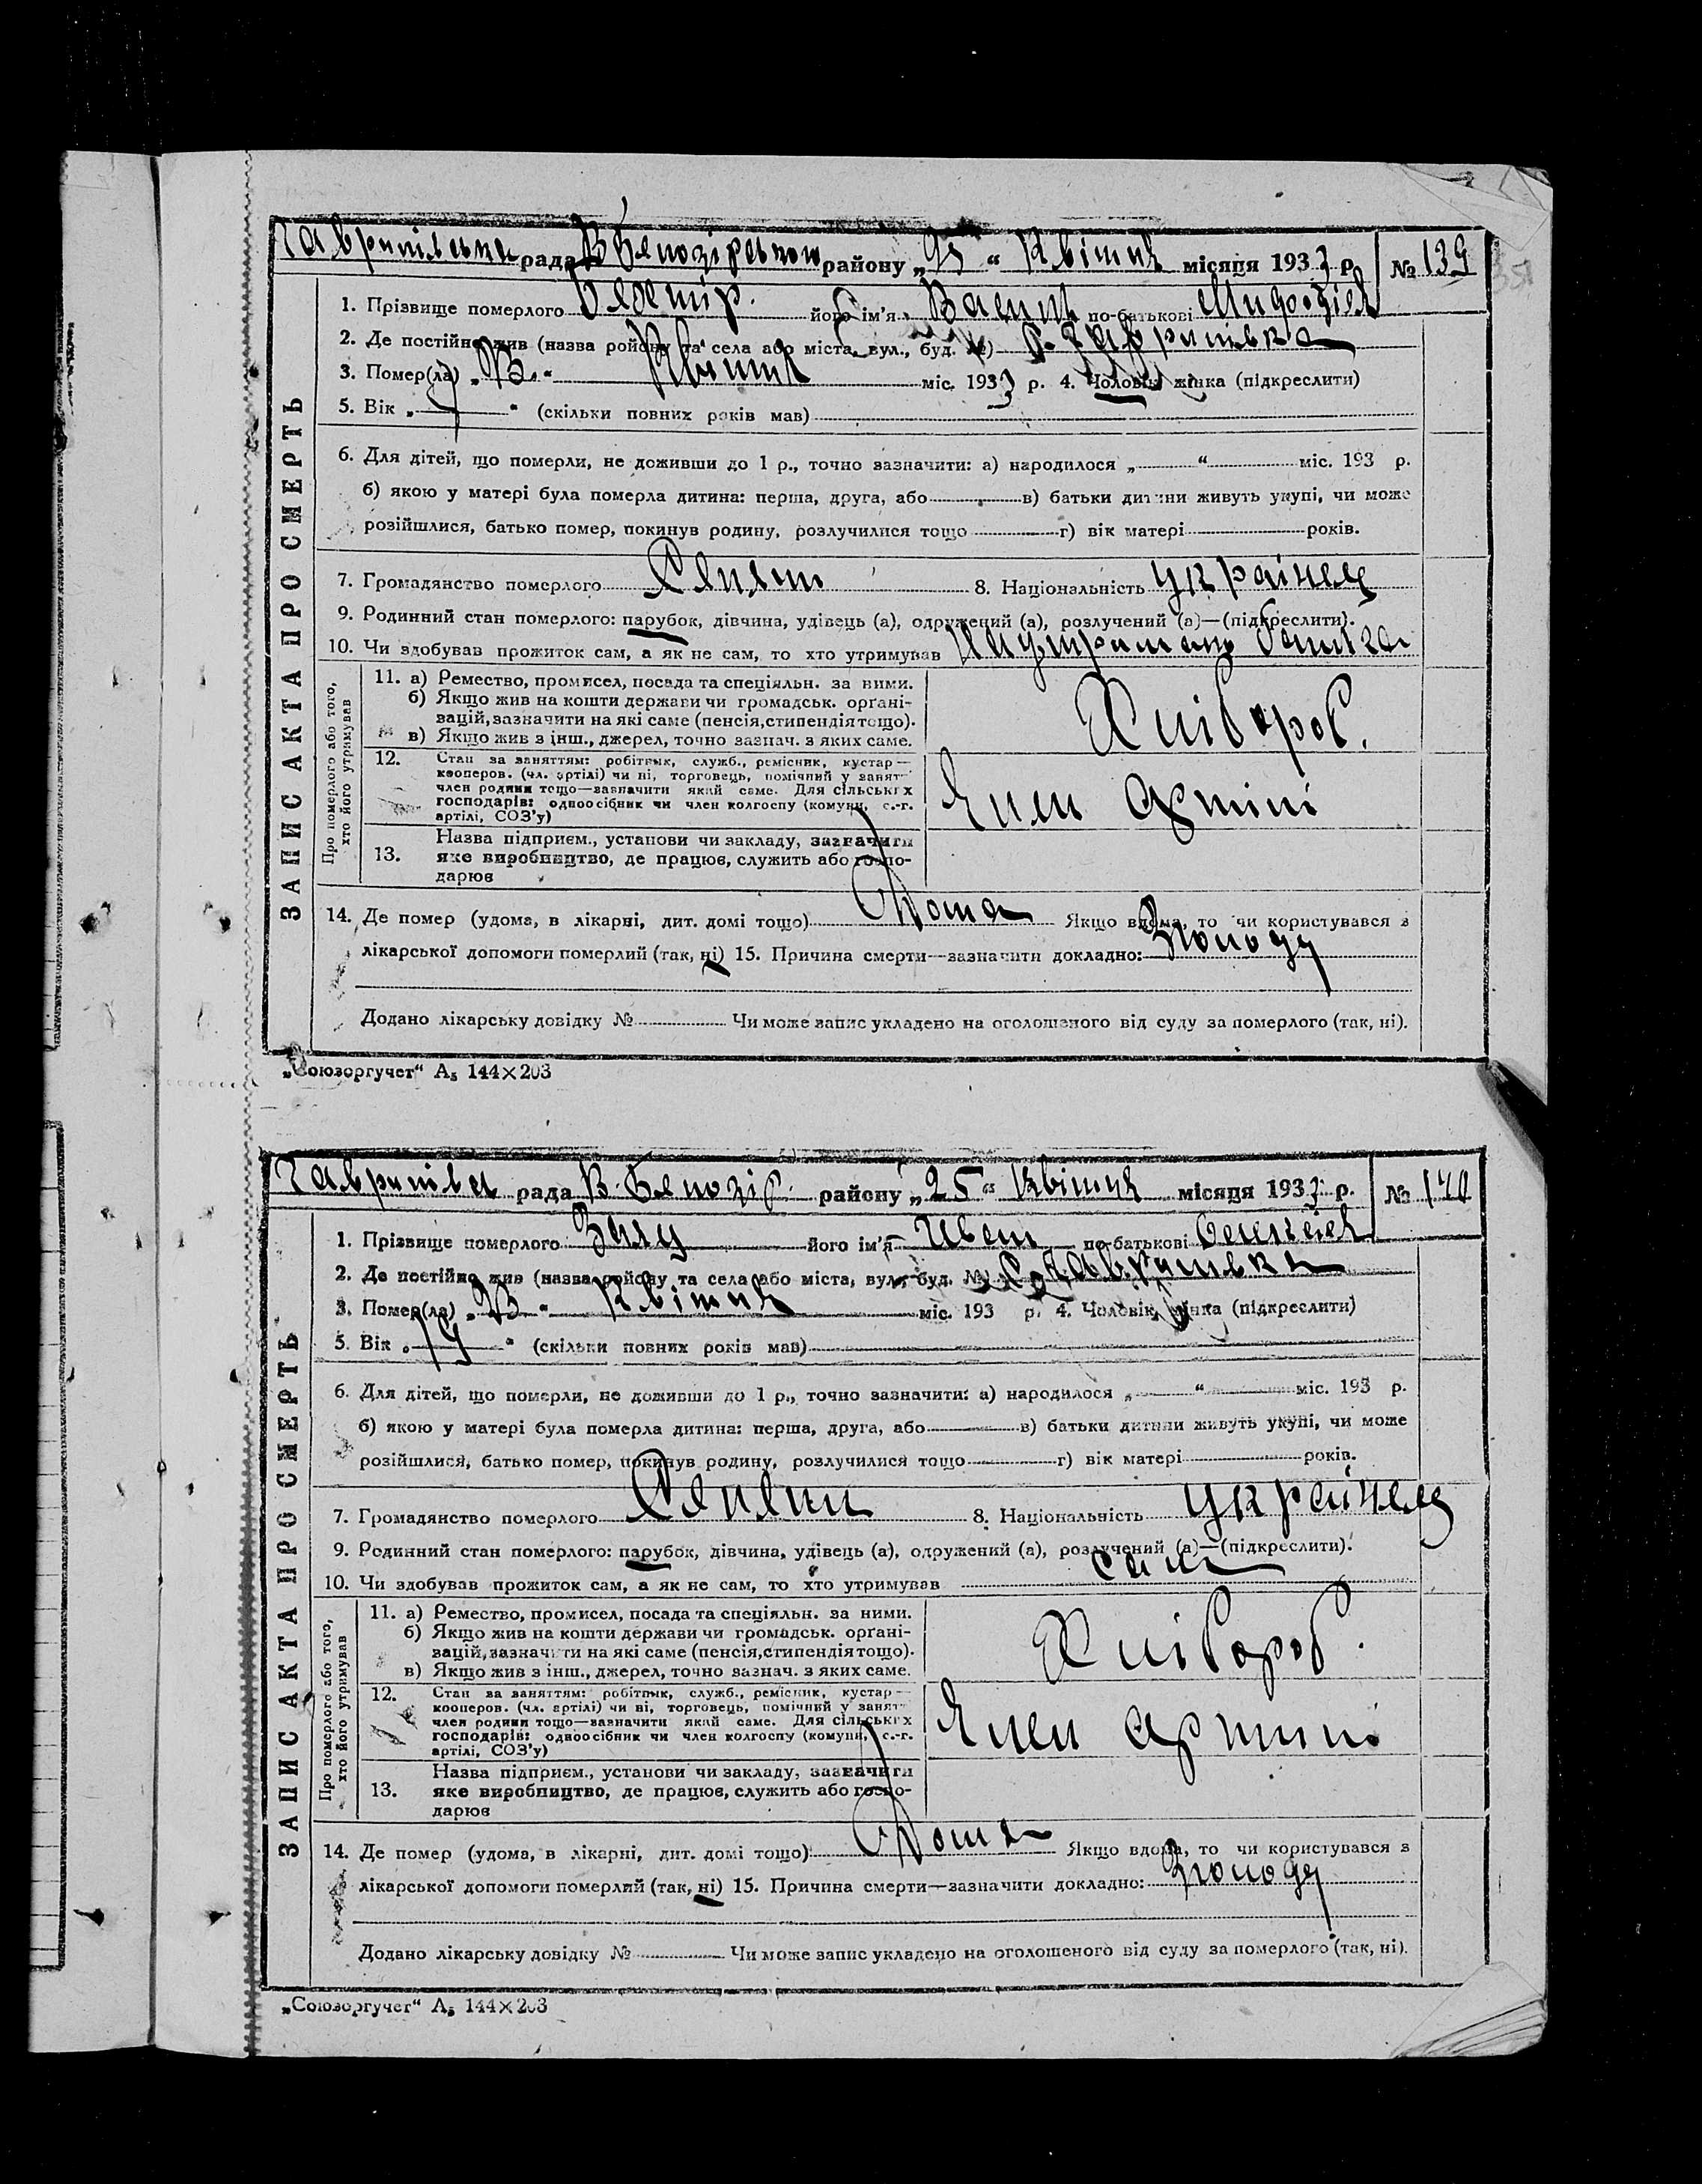 Гаврилівська рада В Білозірського району „25“ Квітня місяця 1933 р. № 139
1. Прізвище померлого його ім'я Василь по-батькові
2. Де постійно жив (назва району та села або міста, вул., буд. №) с. Гаврилівка
3. Помер(ла) „ “ Квітня міс. 1933 р. 4. Чоловік, жінка (підкреслити)
5. Вік „ “ (скільки повних років мав)
6. Для дітей, що померли, не доживши до 1 р., точно зазначити: а) народилося „ “ міс. 193 р.
б) якою у матері була померла дитина: перша, друга, або в) батьки дитини живуть укупі, чи може
розійшлися, батько помер, покинув родину, розлучилися тощо г) вік матері років.
7. Громадянство померлого Селян 8. Національність українец
9. Родинний стан померлого: парубок, дівчина, удівець (а), одружений (а), розлучений (а)—(підкреслити).
10. Чи здобував прожиток сам, а як не сам, то хто утримував
ЗАПИС АКТА ПРО СМЕРТЬ
Про померлого або того, хто його утримував
11. а) Ремество, промисел, посада та спеціяльн. за ними.
б) Якщо жив на кошти держави чи громадськ. органі-
зацій, зазначити на які саме (пенсія, стипендія тощо).
в) Якщо жив з інш., джерел, точно зазнач. з яких саме.
Хлібороб.
12. Стан за заняттям: робітник, служб., ремісник, кустар—
кооперов. (чл. артілі) чи ні, торговець, помічний у занят-
член родини тощо—зазначити який саме. Для сільських
господарів: одноосібник чи член колгоспу (комуни, с.-г.
артілі, СОЗ'у)
Член артілі
13. Назва підприєм., установи чи закладу, зазначити
яке виробництво, де працює, служить або госпо-
дарює
14. Де помер (удома, в лікарні, дит. домі тощо) Дома Якщо вдома, то чи користувався з
лікарської допомоги померлий (так, ні) 15. Причина смерти—зазначити докладно: Зголоду
Додано лікарську довідку № Чи може запис укладено на оголошеного від суду за померлого (так, ні).
„Союзоргучет“ А₅ 144×203
Гаврилівка рада В. Білозір. району „25“ Квітня місяця 1933 р. № 140
1. Прізвище померлого його ім'я Іван по-батькові
2. Де постійно жив (назва району та села або міста, вул., буд. №) с. Гаврилівка
3. Помер(ла) „ “ Квітня міс. 193 р. 4. Чоловік, жінка (підкреслити)
5. Вік „ “ (скільки повних років мав)
6. Для дітей, що померли, не доживши до 1 р., точно зазначити: а) народилося „ “ міс. 193 р.
б) якою у матері була померла дитина: перша, друга, або в) батьки дитини живуть укупі, чи може
розійшлися, батько помер, покинув родину, розлучилися тощо г) вік матері років.
7. Громадянство померлого Селян 8. Національність українец
9. Родинний стан померлого: парубок, дівчина, удівець (а), одружений (а), розлучений (а)—(підкреслити).
10. Чи здобував прожиток сам, а як не сам, то хто утримував сам
ЗАПИС АКТА ПРО СМЕРТЬ
Про померлого або того, хто його утримував
11. а) Ремество, промисел, посада та спеціяльн. за ними.
б) Якщо жив на кошти держави чи громадськ. органі-
зацій, зазначити на які саме (пенсія, стипендія тощо).
в) Якщо жив з інш., джерел, точно зазнач. з яких саме.
Хлібороб.
12. Стан за заняттям: робітник, служб., ремісник, кустар—
кооперов. (чл. артілі) чи ні, торговець, помічний у занят-
член родини тощо—зазначити який саме. Для сільських
господарів: одноосібник чи член колгоспу (комуни, с.-г.
артілі, СОЗ'у)
Член артілі
13. Назва підприєм., установи чи закладу, зазначити
яке виробництво, де працює, служить або госпо-
дарює
14. Де помер (удома, в лікарні, дит. домі тощо) Дома Якщо вдома, то чи користувався з
лікарської допомоги померлий (так, ні) 15. Причина смерти—зазначити докладно: Зголоду
Додано лікарську довідку № Чи може запис укладено на оголошеного від суду за померлого (так, ні).
„Союзоргучет“ А₅ 144×203